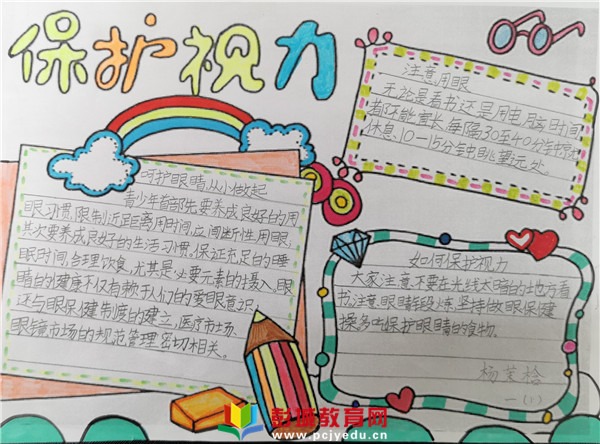 保护视力
注意用眼
无论是看书还是用电脑时间
都不能太长,每隔30至40分钟
休息10—15分钟眺望远处。
呵护眼睛从小做起
青少年首先要养成良好的用
眼习惯,限制近距离用时间,立间断性用眼,
其次要养成良好的生活习惯。保证充足的睡
眠时间,合理饮食,尤其是必要元素的摄入,眼
睛的健康不仅有赖于人们的爱眼意识,
还与眼保健制度的建立,医疗市场、
眼镜市场的规范管理密切相关。
如何保护视力
大家注意不要在光线太暗的地方看
书,注意眼睛锻炼,坚持做眼保健
操多吃保护眼睛的食物。
一(1)
彭城教育网
www.pcjyedu.cn